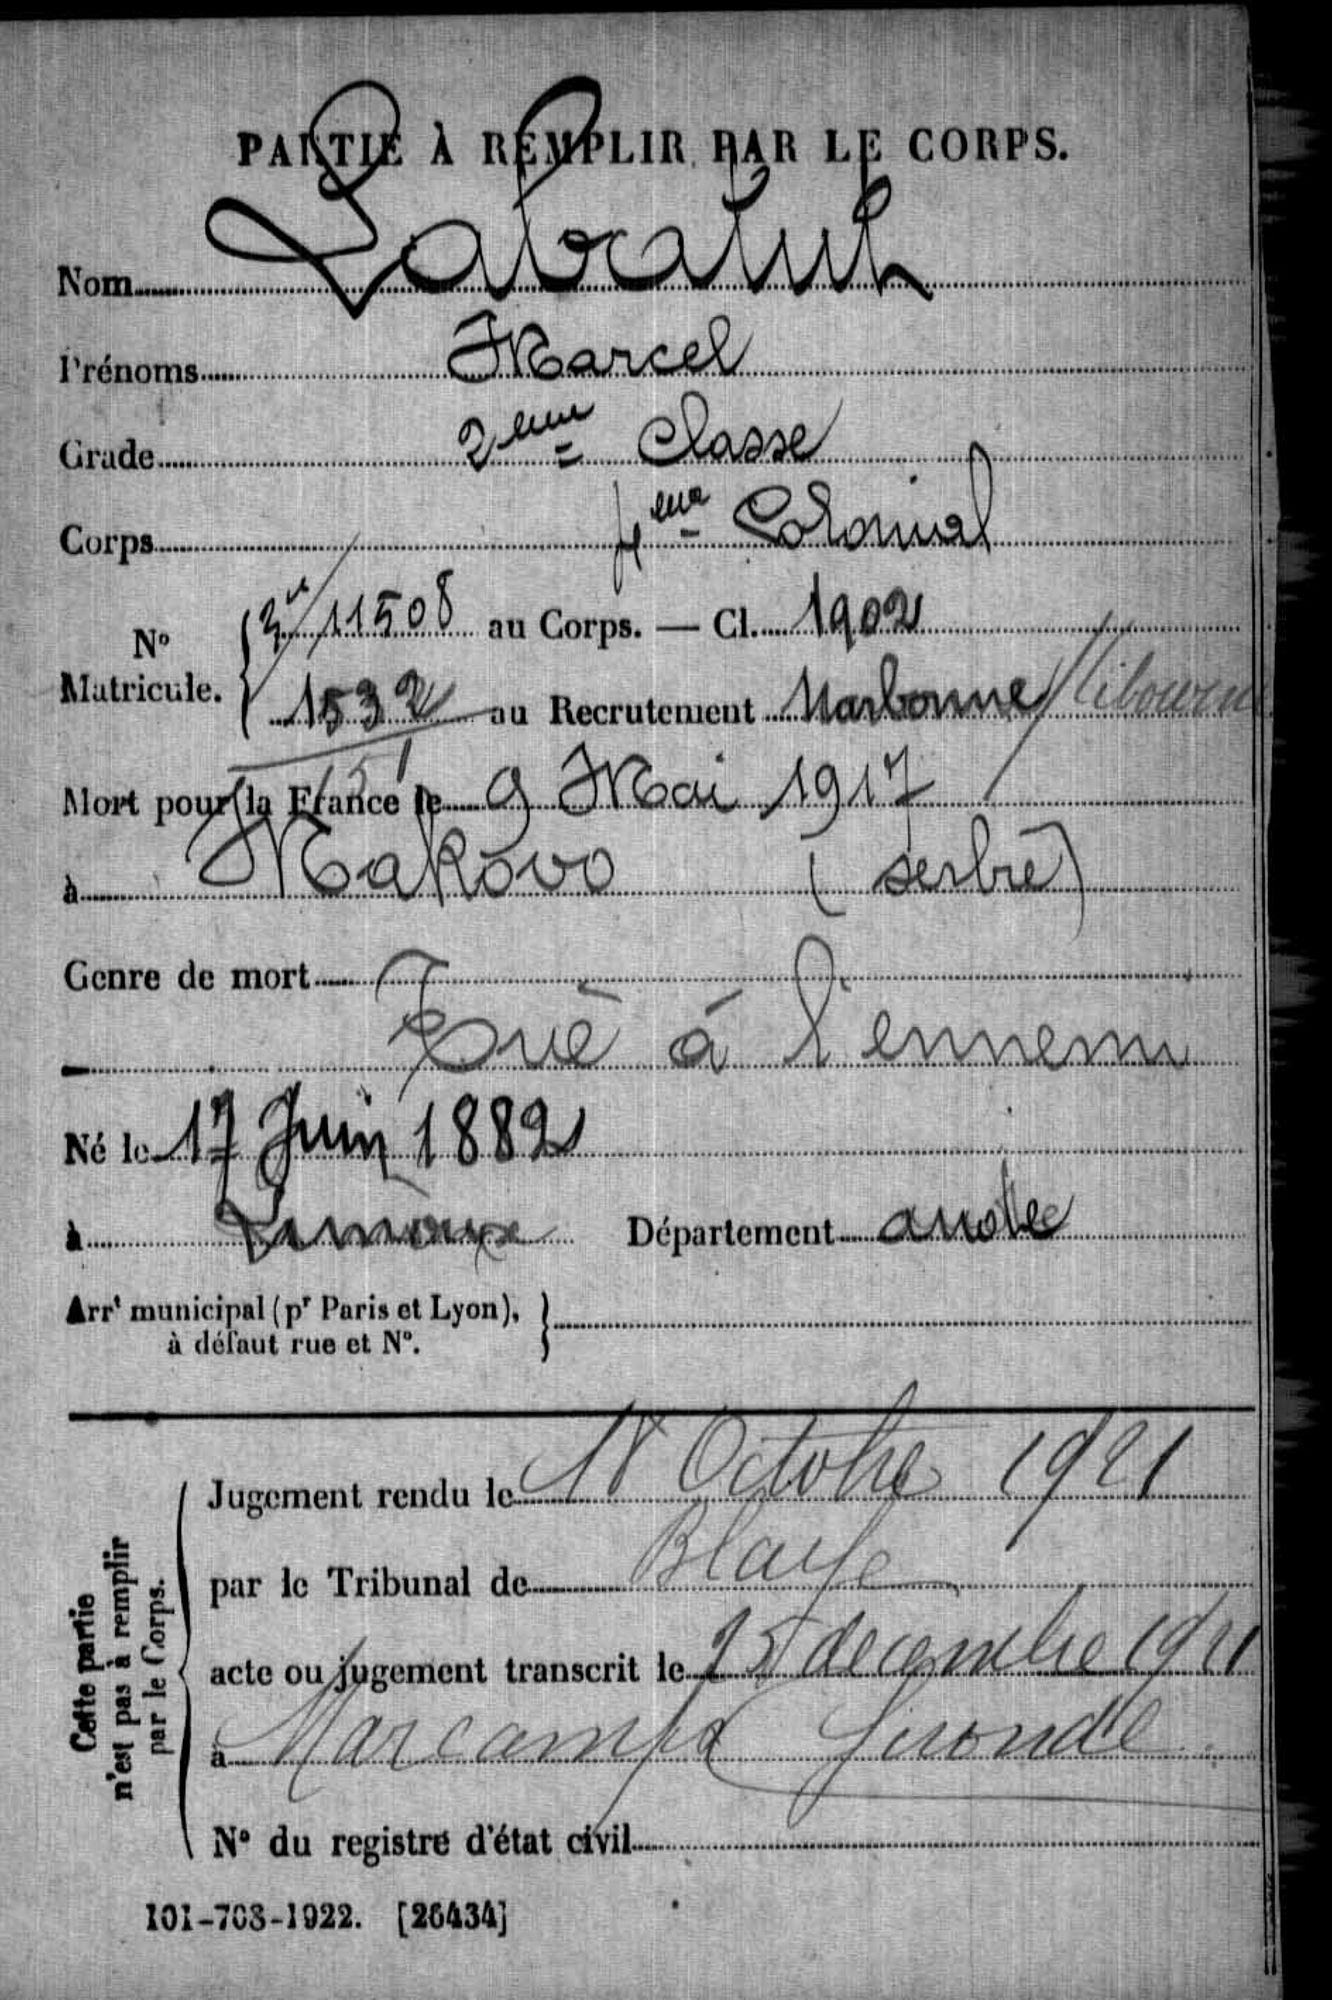 PARTIE À REMPLIR PAR LE CORPS.
Nom Labatut
Prénoms Marcel
Grade 2eme Classe
Corps 4eme Colonial
N° Matricule. 11508 au Corps. — Cl. 1902
1532 au Recrutement Narbonne / Libourne
Mort pour la France le 9 Mai 1917
à Makovo (serbie)
Genre de mort
Tué à l'ennemi
Né le 17 Juin 1882
à Limoux Département aude
Arrt municipal (pr Paris et Lyon),
à défaut rue et N°.
Cette partie
n'est pas à remplir
par le Corps.
Jugement rendu le 18 Octobre 1921
par le Tribunal de Blaye
acte ou jugement transcrit le 25 decembre 1921
à Marcamps Gironde
N° du registre d'état civil
101-708-1922. [26434]